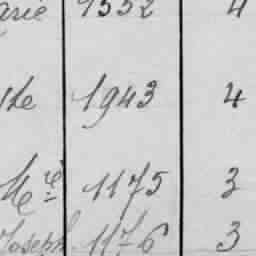 arie 1332 4
the 1943 4
Mre 1175 3
Joseph 1176 3